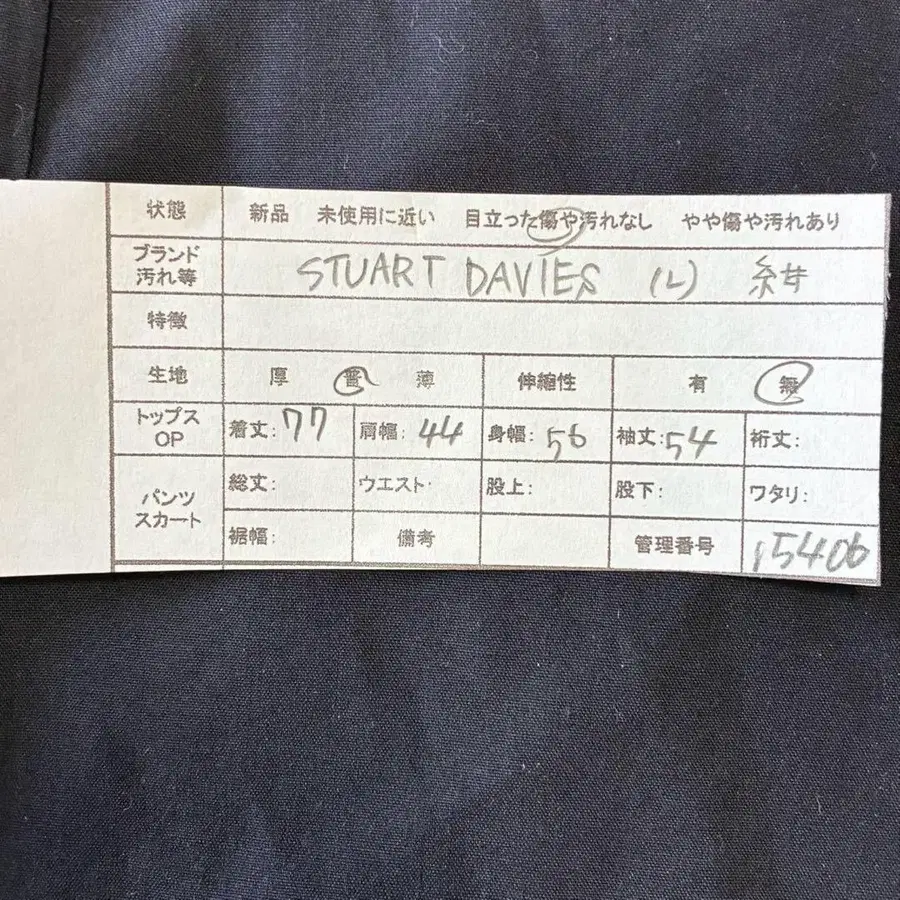 状態 新品 未使用に近い 目立った傷や汚れなし やや傷や汚れあり
ブランド
汚れ等 STUART DAVIES (L) 紺
特徴
生地 厚 普 薄 伸縮性 有 無
トップス
OP 着丈: 77 肩幅: 44 身幅: 56 袖丈: 54 裄丈:
パンツ
スカート 総丈: ウエスト: 股上: 股下: ワタリ:
裾幅: 備考 管理番号 15406